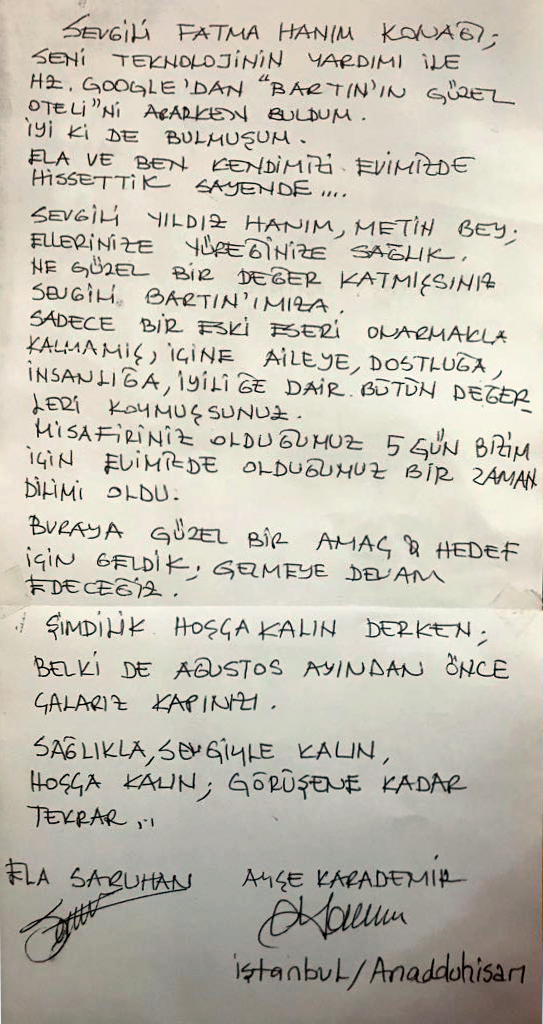 SEVGİLİ FATMA HANIM KONAĞI;
SENİ TEKNOLOJİNİN YARDIMI İLE
HZ. GOOGLE'DAN "BARTIN'IN GÜZEL
OTELİ"Nİ ARARKEN BULDUM.
İYİ Kİ DE BULMUŞUM.
ELA VE BEN KENDİMİZİ EVİMİZDE
HİSSETTİK SAYENDE....
SEVGİLİ YILDIZ HANIM, METİN BEY;
ELLERİNİZE YÜREĞİNİZE SAĞLIK.
NE GÜZEL BİR DEĞER KATMIŞSINIZ
SEVGİLİ BARTIN'IMIZA.
SADECE BİR ESKİ ESERİ ONARMAKLA
KALMAMIŞ, İÇİNE AİLEYE, DOSTLUĞA,
İNSANLIĞA, İYİLİĞE DAİR BÜTÜN DEĞER_
LERİ KOYMUŞSUNUZ.
MİSAFİRİNİZ OLDUĞUMUZ 5 GÜN BİZİM
İÇİN EVİMİZDE OLDUĞUMUZ BİR ZAMAN
DİLİMİ OLDU.
BURAYA GÜZEL BİR AMAÇ & HEDEF
İÇİN GELDİK; GELMEYE DEVAM
EDECEĞİZ.
ŞİMDİLİK HOŞÇA KALIN DERKEN;
BELKİ DE AĞUSTOS AYINDAN ÖNCE
ÇALARIZ KAPINIZI.
SAĞLIKLA, SEVGİYLE KALIN,
HOŞÇA KALIN; GÖRÜŞENE KADAR
TEKRAR...
ELA SARUHAN AYŞE KARADEMİR
İstanbul/Anadoluhisarı